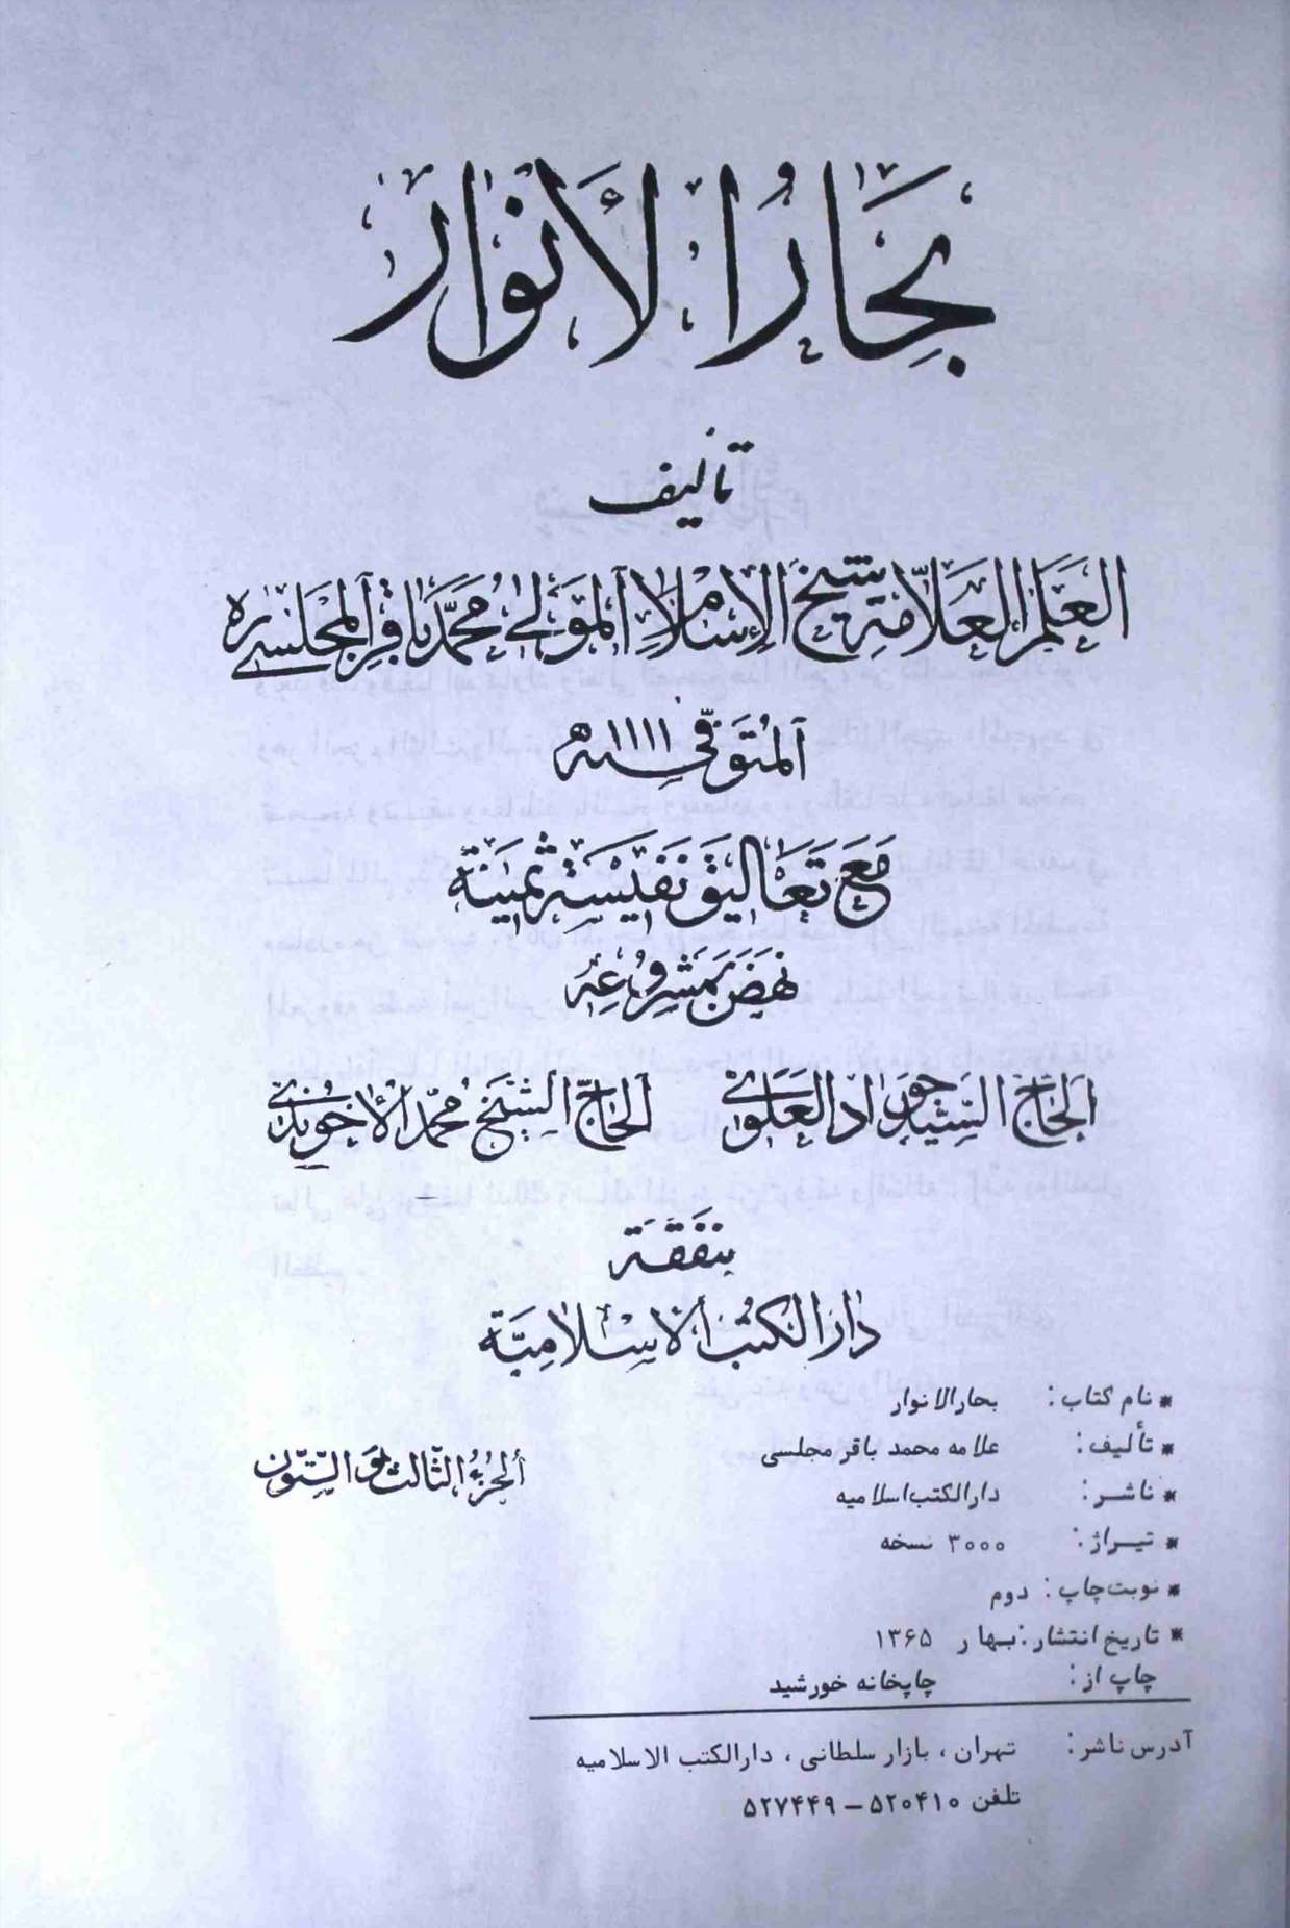 بِحَارُ الأَنوار
تأليف
العَلَم العَلّامَة شَيخ الإِسْلام المَولى مُحَمَّد بَاقِر المَجلسي ره
اَلمُتَوَفّى سنه ۱۱۱۱ ه
مَعَ تَعَاليق نَفيسَة ثَمينَة
نَهَضَ بِمَشرُوعِه
الحَاجّ السَّيّد جَواد العَلَوي الحاجّ الشّيخ مُحمّد الآخوندي
بنَفَقَة
دارالكتب الاسلاميّة
* نام کتاب: بحارالانوار
* تألیف: علامه محمد باقر مجلسی
ألجزء الثّالث و السّتّون
* ناشر: دارالکتب اسلامیه
* تیراژ: ۳۰۰۰ نسخه
* نوبت چاپ: دوم
* تاریخ انتشار: بهار ۱۳۶۵
چاپ از: چاپخانه خورشید
آدرس ناشر: تهران، بازار سلطانی، دارالکتب الاسلامیه
تلفن ۵۲۰۴۱۰ – ۵۲۷۴۴۹